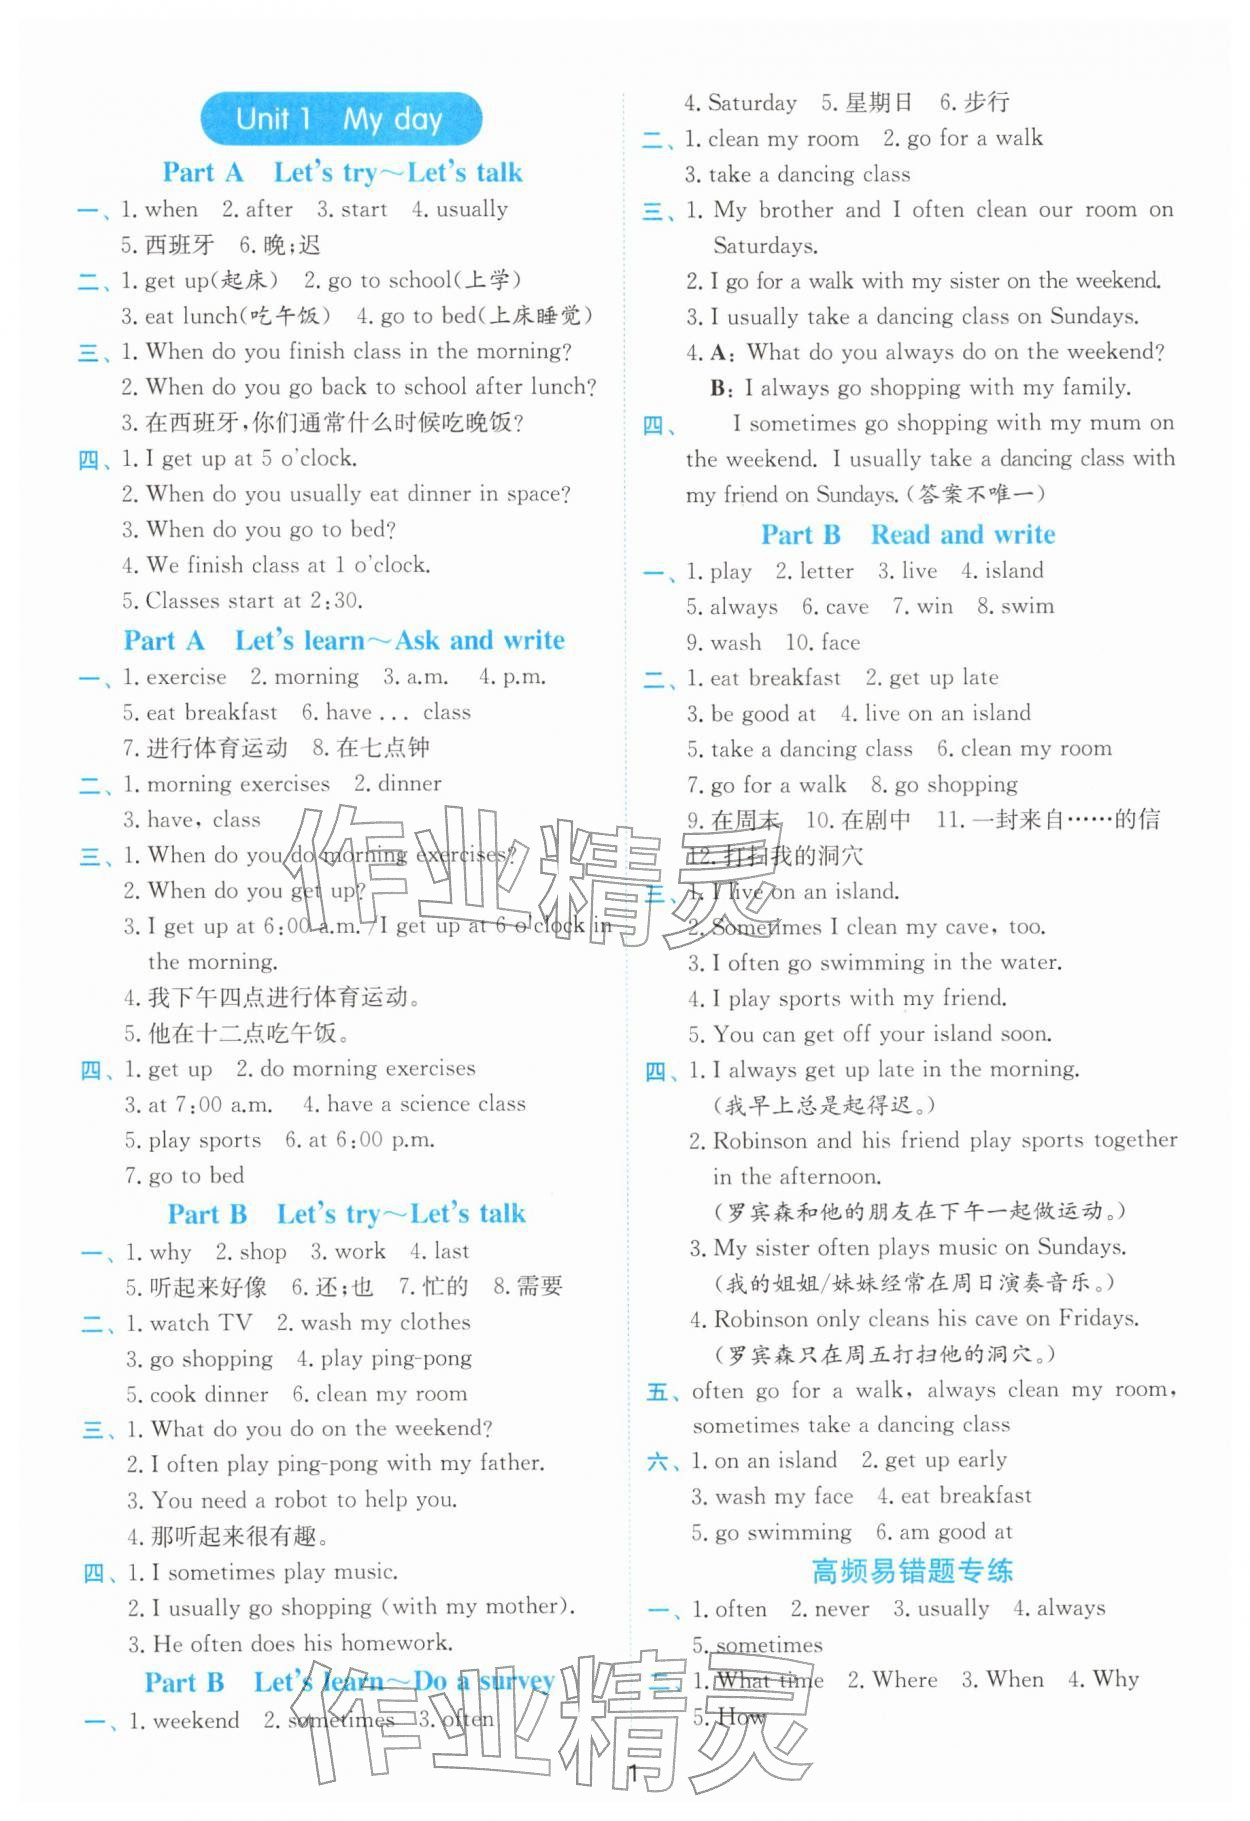 Unit 1 My day
Part A Let's try～Let's talk
一、1. when 2. after 3. start 4. usually
5. 西班牙 6. 晚;迟
二、1. get up(起床) 2. go to school(上学)
3. eat lunch(吃午饭) 4. go to bed(上床睡觉)
三、1. When do you finish class in the morning?
2. When do you go back to school after lunch?
3. 在西班牙,你们通常什么时候吃晚饭?
四、1. I get up at 5 o'clock.
2. When do you usually eat dinner in space?
3. When do you go to bed?
4. We finish class at 1 o'clock.
5. Classes start at 2:30.
Part A Let's learn～Ask and write
一、1. exercise 2. morning 3. a.m. 4. p.m.
5. eat breakfast 6. have ... class
7. 进行体育运动 8. 在七点钟
二、1. morning exercises 2. dinner
3. have, class
三、1. When do you do morning exercises?
2. When do you get up?
3. I get up at 6:00 a.m. /I get up at 6 o'clock in
the morning.
4. 我下午四点进行体育运动。
5. 他在十二点吃午饭。
四、1. get up 2. do morning exercises
3. at 7:00 a.m. 4. have a science class
5. play sports 6. at 6:00 p.m.
7. go to bed
Part B Let's try～Let's talk
一、1. why 2. shop 3. work 4. last
5. 听起来好像 6. 还;也 7. 忙的 8. 需要
二、1. watch TV 2. wash my clothes
3. go shopping 4. play ping-pong
5. cook dinner 6. clean my room
三、1. What do you do on the weekend?
2. I often play ping-pong with my father.
3. You need a robot to help you.
4. 那听起来很有趣。
四、1. I sometimes play music.
2. I usually go shopping (with my mother).
3. He often does his homework.
Part B Let's learn～Do a survey
一、1. weekend 2. sometimes 3. often
4. Saturday 5. 星期日 6. 步行
二、1. clean my room 2. go for a walk
3. take a dancing class
三、1. My brother and I often clean our room on
Saturdays.
2. I go for a walk with my sister on the weekend.
3. I usually take a dancing class on Sundays.
4. A: What do you always do on the weekend?
B: I always go shopping with my family.
四、 I sometimes go shopping with my mum on
the weekend. I usually take a dancing class with
my friend on Sundays. (答案不唯一)
Part B Read and write
一、1. play 2. letter 3. live 4. island
5. always 6. cave 7. win 8. swim
9. wash 10. face
二、1. eat breakfast 2. get up late
3. be good at 4. live on an island
5. take a dancing class 6. clean my room
7. go for a walk 8. go shopping
9. 在周末 10. 在剧中 11. 一封来自……的信
12. 打扫我的洞穴
三、1. I live on an island.
2. Sometimes I clean my cave, too.
3. I often go swimming in the water.
4. I play sports with my friend.
5. You can get off your island soon.
四、1. I always get up late in the morning.
(我早上总是起得迟。)
2. Robinson and his friend play sports together
in the afternoon.
(罗宾森和他的朋友在下午一起做运动。)
3. My sister often plays music on Sundays.
(我的姐姐/妹妹经常在周日演奏音乐。)
4. Robinson only cleans his cave on Fridays.
(罗宾森只在周五打扫他的洞穴。)
五、often go for a walk, always clean my room,
sometimes take a dancing class
六、1. on an island 2. get up early
3. wash my face 4. eat breakfast
5. go swimming 6. am good at
高频易错题专练
一、1. often 2. never 3. usually 4. always
5. sometimes
二、1. What time 2. Where 3. When 4. Why
5. How
1
作业精灵
作业精灵